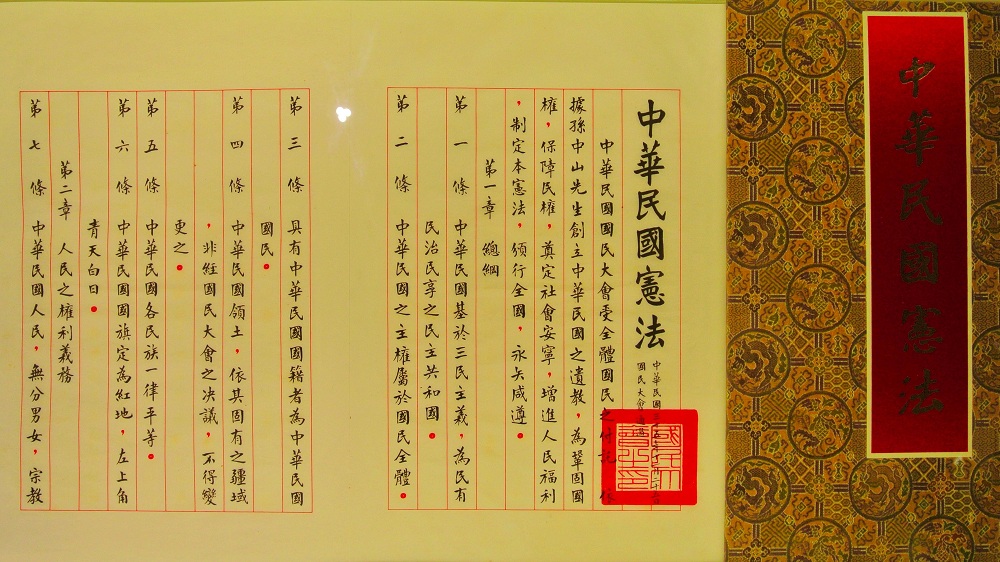 中華民國憲法
中華民國憲法
國民大會
中華民國國民大會受全體國民之付託 依
據孫中山先生創立中華民國之遺教，為鞏固國
權，保障民權，奠定社會安寧，增進人民福利
，制定本憲法，頒行全國，永矢咸遵。
第一章 總綱
第一條 中華民國基於三民主義，為民有
民治民享之民主共和國。
第二條 中華民國之主權屬於國民全體。
第三條 具有中華民國國籍者為中華民國
國民。
第四條 中華民國領土，依其固有之疆域
，非經國民大會之決議，不得變
更之。
第五條 中華民國各民族一律平等。
第六條 中華民國國旗定為紅地，左上角
青天白日。
第二章 人民之權利義務
第七條 中華民國人民，無分男女，宗教